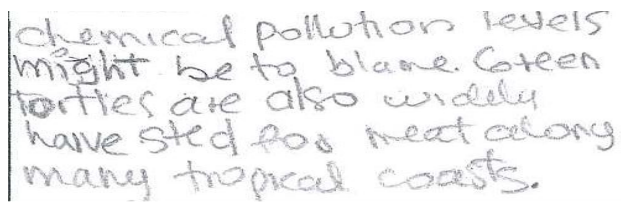 chemical pollution levels
might be to blame. Green
tortles are also widely
harve sted for meat along
many tropical coasts.